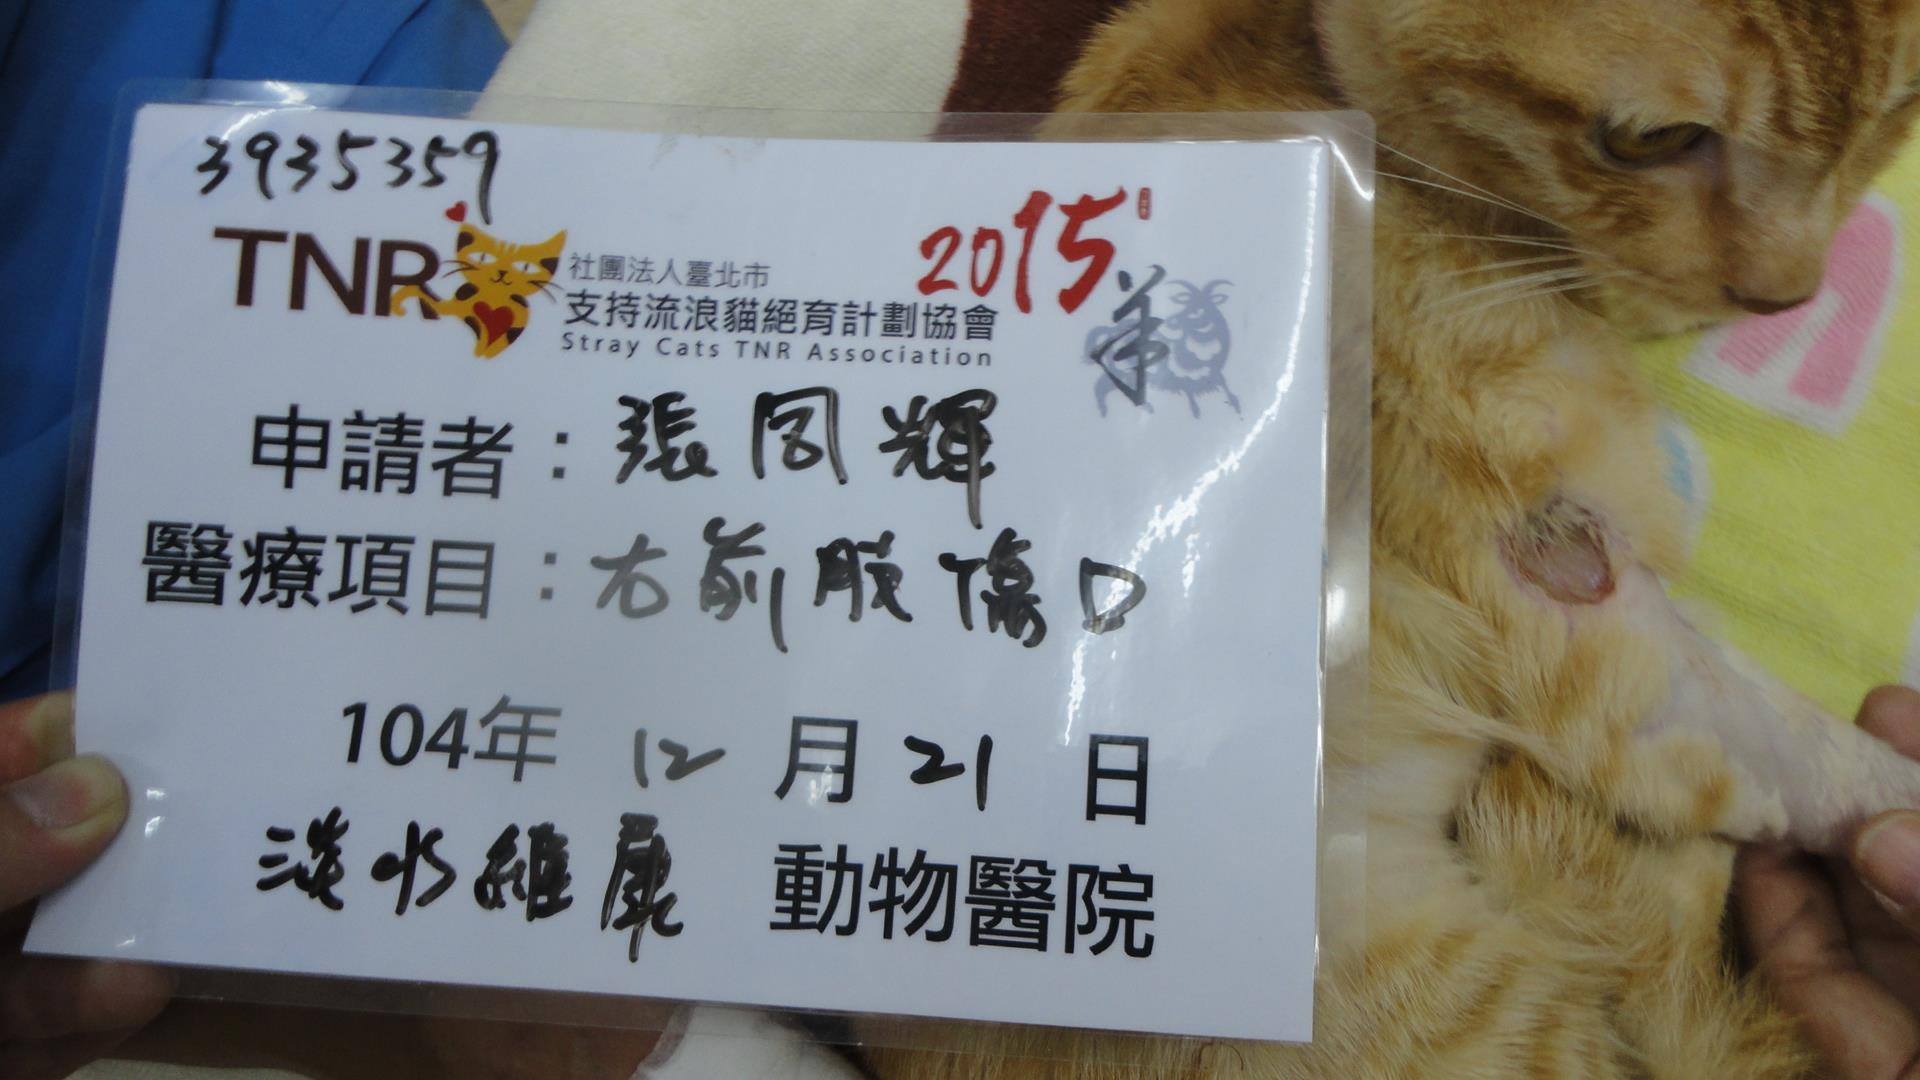 3935359
TNR
社團法人臺北市
支持流浪貓絕育計劃協會
Stray Cats TNR Association
2015
羊
申請者：張同輝
醫療項目：右前肢傷口
104年 12 月 21 日
淡水維康 動物醫院